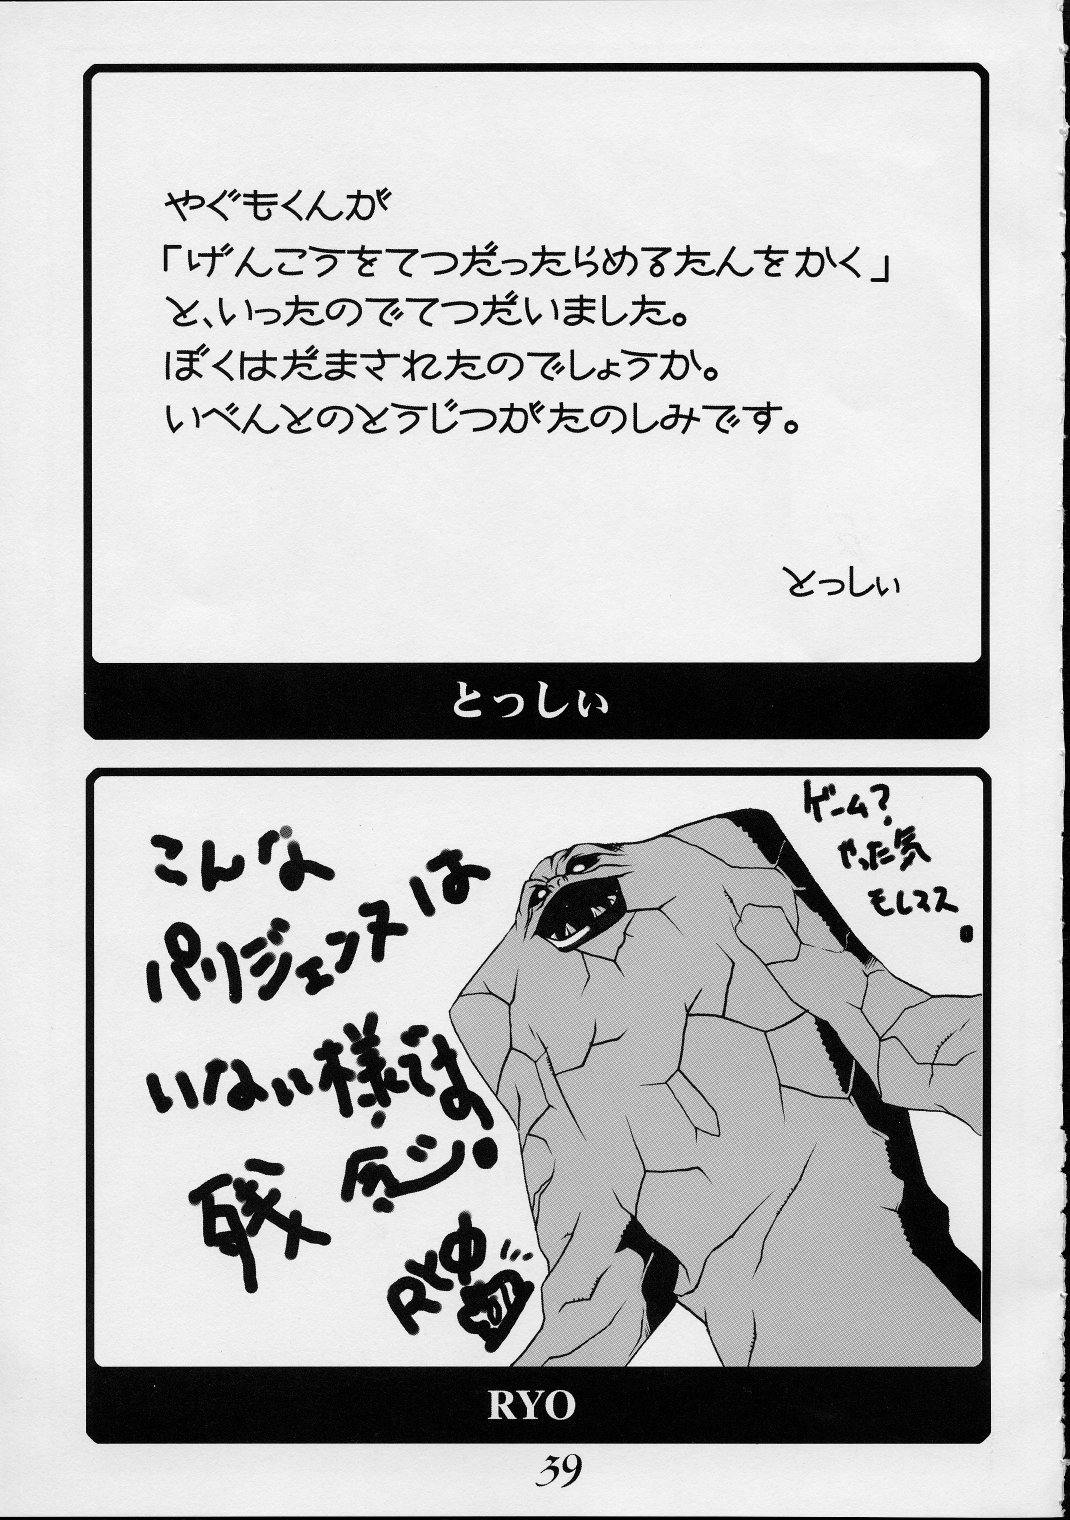 やぐもくんが
「げんこうをてつだったらめるたんをかく」
と、いったのでてつだいました。
ぼくはだまされたのでしょうか。
いべんとのとうじつがたのしみです。
とっしぃ
とっしぃ
ゲーム?
やった気
もしマス
こんな
パリジェンヌは
いない様では
残念ジ。
RYO
39